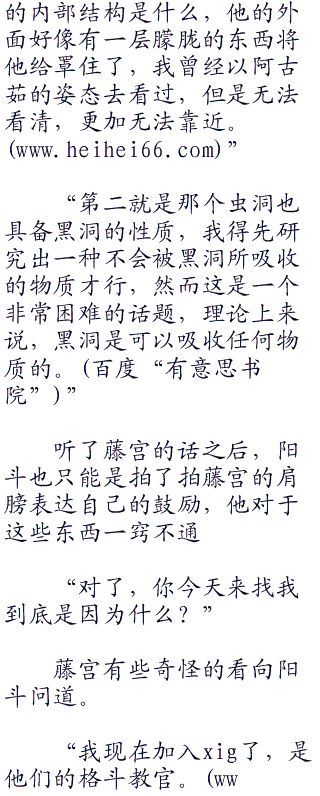 的内部结构是什么，他的外
面好像有一层朦胧的东西将
他给罩住了，我曾经以阿古
茹的姿态去看过，但是无法
看清，更加无法靠近。
(www.heihei66.com)”
“第二就是那个虫洞也
具备黑洞的性质，我得先研
究出一种不会被黑洞所吸收
的物质才行，然而这是一个
非常困难的话题，理论上来
说，黑洞是可以吸收任何物
质的。(百度“有意思书
院”)”
听了藤宫的话之后，阳
斗也只能是拍了拍藤宫的肩
膀表达自己的鼓励，他对于
这些东西一窍不通
“对了，你今天来找我
到底是因为什么？”
藤宫有些奇怪的看向阳
斗问道。
“我现在加入xig了，是
他们的格斗教官。(ww